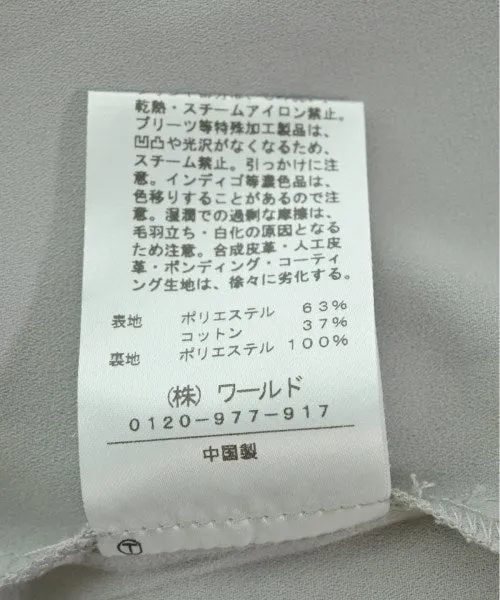 乾熱・スチームアイロン禁止。
プリーツ等特殊加工製品は、
凹凸や光沢がなくなるため、
スチーム禁止。引っかけに注
意。インディゴ等濃色品は、
色移りすることがあるので注
意。湿潤での過剰な摩擦は、
毛羽立ち・白化の原因となる
ため注意。合成皮革・人工皮
革・ボンディング・コーティ
ング生地は、徐々に劣化する。
表地 ポリエステル 63%
コットン 37%
裏地 ポリエステル 100%
(株) ワールド
0120-977-917
中国製
T